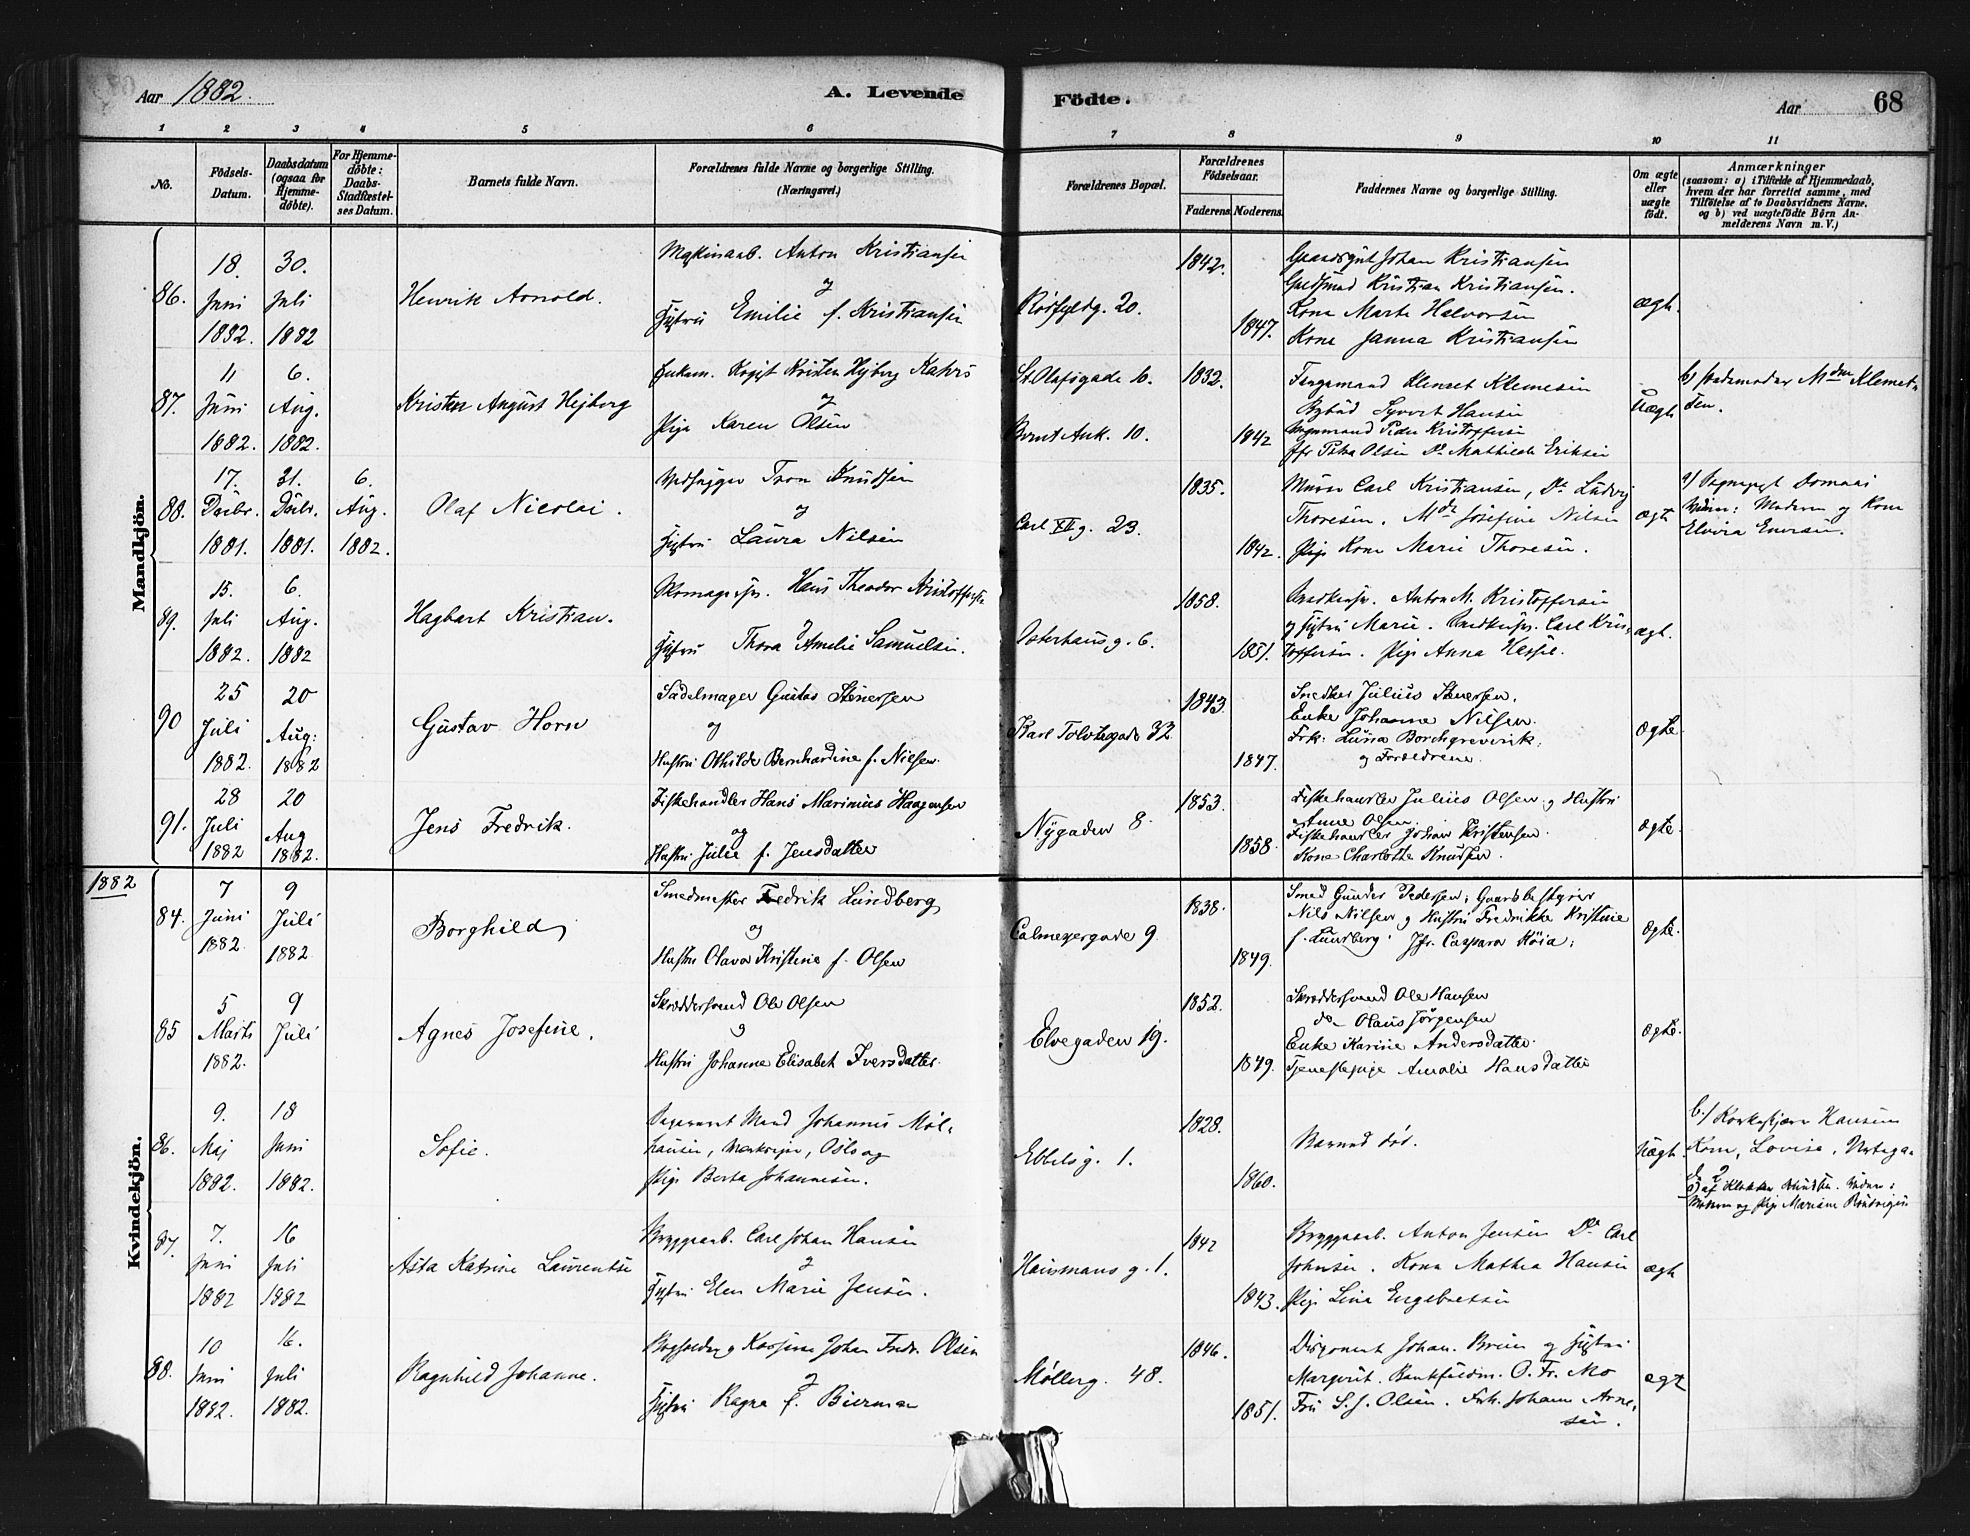 Aar 1882.
A. Levende Födte.
Aar 68
1 2 3 4 5 6 7 8 9 10 11
No.
Födsels-Datum.
Daabsdatum (ogsaa for Hjemme-döbte).
For Hjemme-döbte: Daabs-Stadfæstel-ses Datum.
Barnets fulde Navn.
Forældrenes fulde Navne og borgerlige Stilling.
(Næringsvei.)
Forældrenes Bopæl.
Forældrenes Födselsaar.
Faderens. Moderens.
Faddernes Navne og borgerlige Stilling.
Om ægte eller uægte födt.
Anmærkninger
(saasom: a) i Tilfælde af Hjemmedaab,
hvem der har forrettet samme, med
Tilföielse af to Daabsvidners Navne,
og b) ved uægtefödte Börn An-
melderens Navn m. V.)
Mandkjön.
86. 18. Juni 1882 30. Juli 1882
Henrik Arnold.
Anton Kristiansen
og
Emilie f. Kristiansen
20.
1842. 1847.
Johan Kristiansen
Kristian Kristiansen.
Kone Marte Halvorsen
Kone Janna Kristiansen
ægte.
87. 11 Juni 1882. 6. Aug. 1882.
Kristen August Hejborg
og
Pige Karen Olsen
St. Olafsgade
Bernt Ank. 10.
1832. 1842
Syvert Hansen
Peder Kristoffersen
Olsen Do Mathilde Eriksen
Uægte
88. 17. Decbr. 1881. 31. Decbr. 1881. 6. Aug. 1882.
Olaf Nicolai.
Tron Knudsen
og
Hustru Laura Nilsen
Carl XII g. 23.
1835. 1842.
Murer Carl Kristiansen, Do Ludvig
Thoresen. Josefine Nilsen
Pige Kone Marie Thoresen.
ægte
Moderen og Kone
89. 15. Juli 1882. 6. Aug. 1882
Hagbart Kristian.
Hans Theodor Kristoffersen
og
Hustru Thora Amelie Samuelsen.
Osterhausg. 6.
1858. 1851.
Anton M. Kristoffersen
og Hustru Marie. Carl Kris-
toffersen. Pige Anna
ægt.
90 25 Juli 1882. 20 Aug: 1882
Gustav Horn
Sadelmager Gustav Stenersen
og
Hustru Othilde Bernhardine f. Nielsen.
Karl Tolvtegade 32
1843. 1847.
Snedker Julius Stenersen,
Enke Johanne Nilsen.
Frk: Luisa Borchgrevink,
og Forældrene.
ægte.
91. 28 Juli 1882 20 Aug 1882.
Jens Fredrik.
Fiskehandler Hans Marinius Haagensen
og
Hustru Julie f. Jensdatter
Nygaden 8.
1853. 1858.
Fiskehandler Julius Olsen og Hustru
Anne Olsen.
Fiskehandler Johan Kristensen.
Kone Charlotte Knudsen.
ægte.
1882
Kvindekjön.
84. 7 Juni 1882. 9 Juli 1882
Borghild
Smedmester Fredrik Lundberg
og
Hustru Olava Kristine f. Olsen
Calmeyergade 9
1838. 1849.
Smed Gunder Pedersen; Gaardbestyrer
Nils Nilsen og Hustru Fredrikke Kristine
f. Lundberg. Jfr. Caspara Höia;
ægte.
85 5 Marts 1882. 9 Juli
Agnes Josefine.
Skræddersvend Ole Olsen
og
Hustru Johanne Elisabet Iversdatter.
Elvegaden 19.
1852. 1849.
Skræddersvend Ole Hansen
do- Olaus Jörgensen
Enke Karine Andersdatter.
Tjenestepige Amalie Hansdatter
ægte.
86. 9. Maj 1882. 18 Juni 1882.
Sofie.
Mand Johannes Møl-
hausen, Oslo og
Pige Berta Johannesen.
Ebbelsg. 1.
1828. 1860.
Barnet død.
Uægte.
Hansens
Kone, Lovise,
87. 7. Juni 1882 16 Juli 1882
Asta Katrine Laurentse
Bryggearb. Carl Johan Hansen
og
Hustru Elen Marie Jensen.
Hausmans g. 1.
1842 1843.
Bryggearb. Anton Jensen Do Carl
Johnsen. Kone Mathea Hansen
Pige Lina Engebretsen
ægte
88. 10 Juni 1882. 16. Juli 1882.
Ragnhild Johanne.
Bogholder og Johan Olsen
og
Hustru Ragna f. Bierman
Møllerg. 48.
1846. 1851.
Disponent Johan Bruun og Hustru
Margrit. O. Fr. Mo
Fru S. J. Olsen. Frk. Johanne Arne-
sen.
ægte